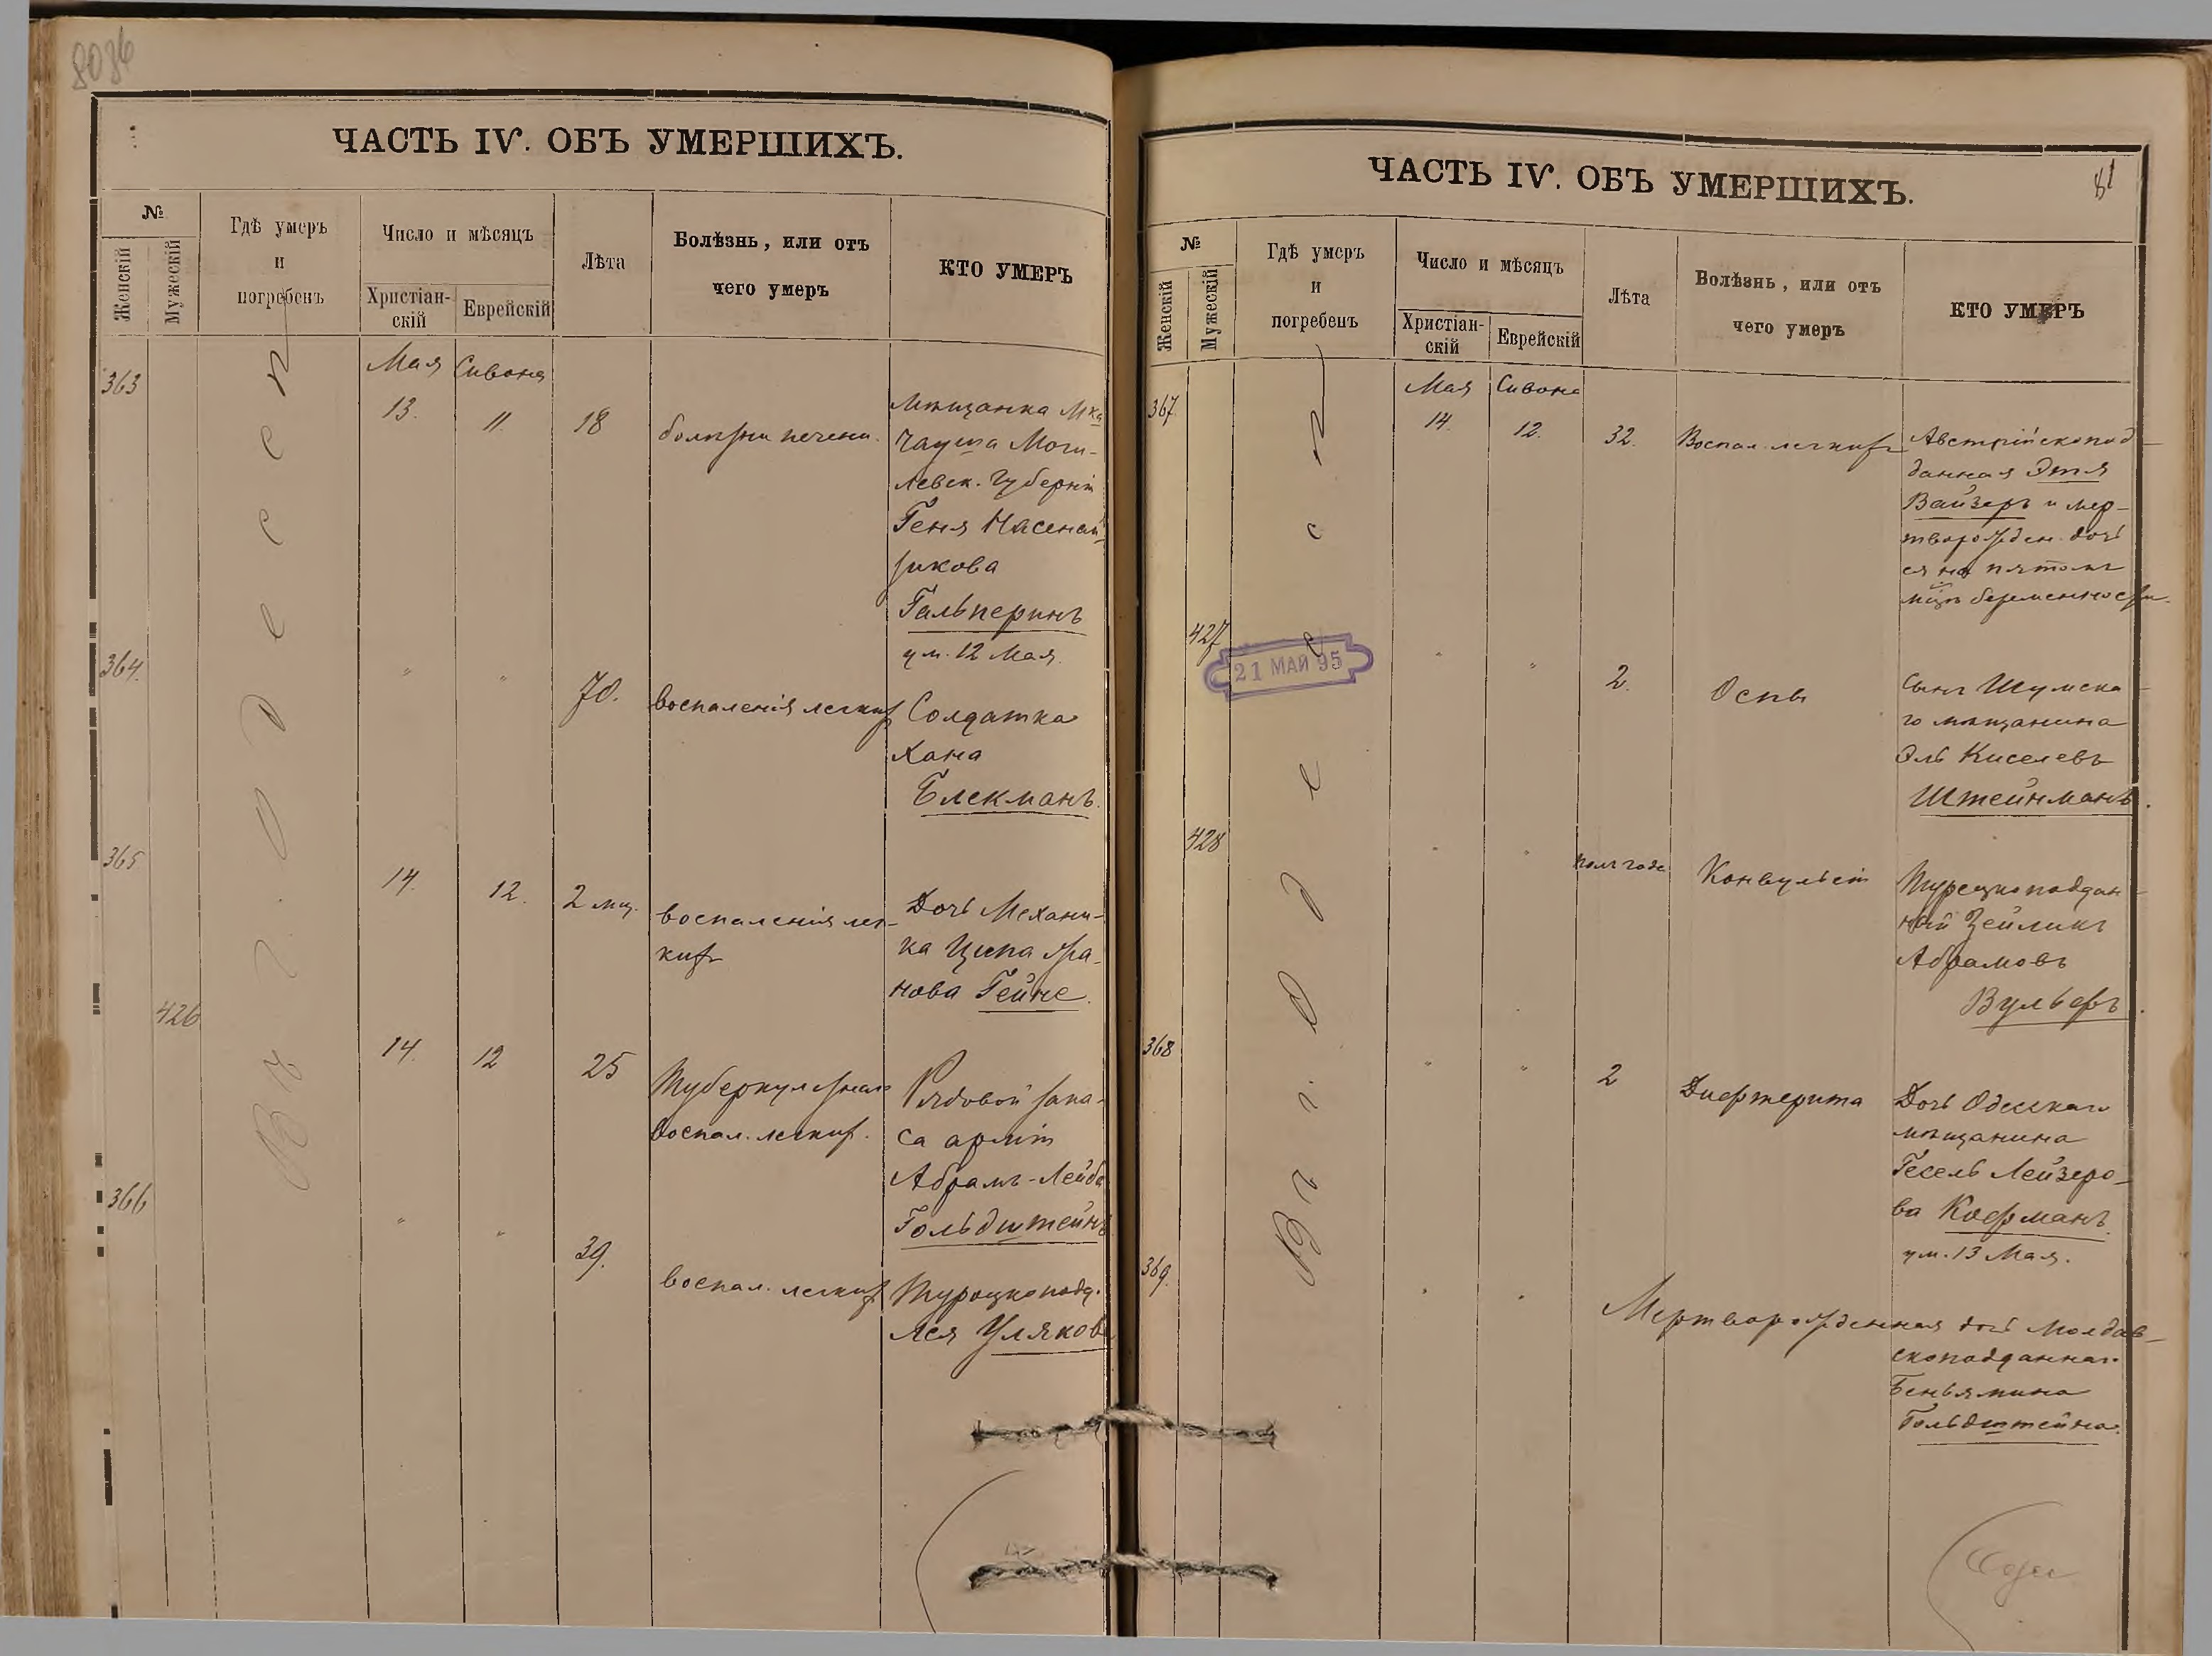 8036
ЧАСТЬ IV. ОБЪ УМЕРШИХЪ.
№
Женскій
Мужескій
Гдѣ умеръ
и
погребенъ
Число и мѣсяцъ
Христіан-
скій
Еврейскій
Лѣта
Болѣзнь, или отъ
чего умеръ
КТО УМЕРЪ
Въ г. Одессѣ
Мая Сивона
363
13. 11. 18 болѣзни печени.
Мѣщанка Мѣс
Чауша Моги-
левск. Губерніи
Геня
зикова
Гальперинъ
ум. 12 Мая.
364. " " 70. воспаленія легкихъ
Солдатка
Хана
Блекманъ.
365
14. 12. 2 мц. воспаленія лег-
кихъ
Дочь Механи-
ка Ципа
нова Гейне.
426
14. 12 25 Туберкулезнаго
воспал. легких.
Рядовой запа-
са арміи
Абрамъ-Лейба
Гольдштейнъ
366
" " 39. воспал. легких
Турецкопод.
Лея Уляковъ
ЧАСТЬ IV. ОБЪ УМЕРШИХЪ.
81
№
Женскій
Мужескій
Гдѣ умеръ
и
погребенъ
Число и мѣсяцъ
Христіан-
скій
Еврейскій
Лѣта
Болѣзнь, или отъ
чего умеръ
КТО УМЕРЪ
Въ г. Одессѣ
Мая Сивона
367
14. 12. 32. Воспал. легкихъ
Австрійскопод-
данная Этя
Вайзеръ и мер-
творожден. дочь
ея на пятомъ
мцѣ беременности.
427
21 МАЙ 95
" " 2. Оспы
Сынъ Шумска-
го мѣщанина
Эль Киселевъ
Штейнманъ.
428
" " полъ года Конвульсіи
Турецкоподдан-
ный Зейликъ
Абрамовъ
Вульфъ.
368
" " 2 Дифтерита
Дочь Одесскаго
мѣщанина
Гесель Лейзеро-
ва Кофманъ.
ум. 13 Мая.
369.
" " Мертворожденная дочь Молдав-
скоподданнаго
Беньямина
Гольдштейна.